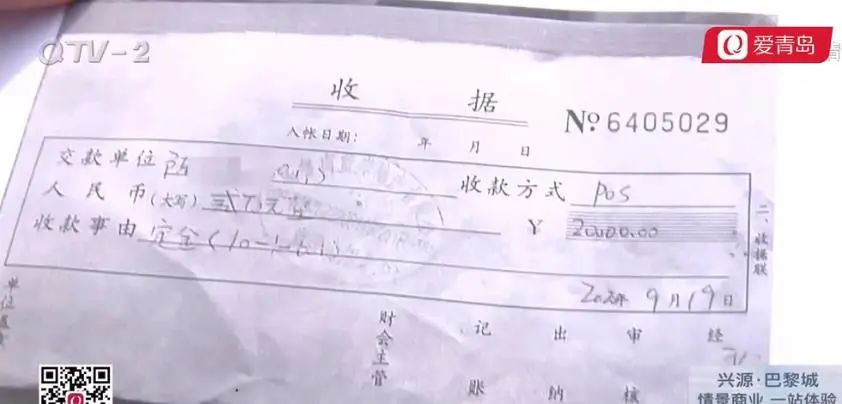 QTV-2
爱青岛
收 据
№ 6405029
入帐日期: 年 月 日
交款单位 收款方式 POS
人民币(大写) 贰万元整 ¥ 20000.00
收款事由 定金
二、收据联
9月19日
财会主管 记账 出纳 审核 经
兴源·巴黎城
情景商业 一站体验